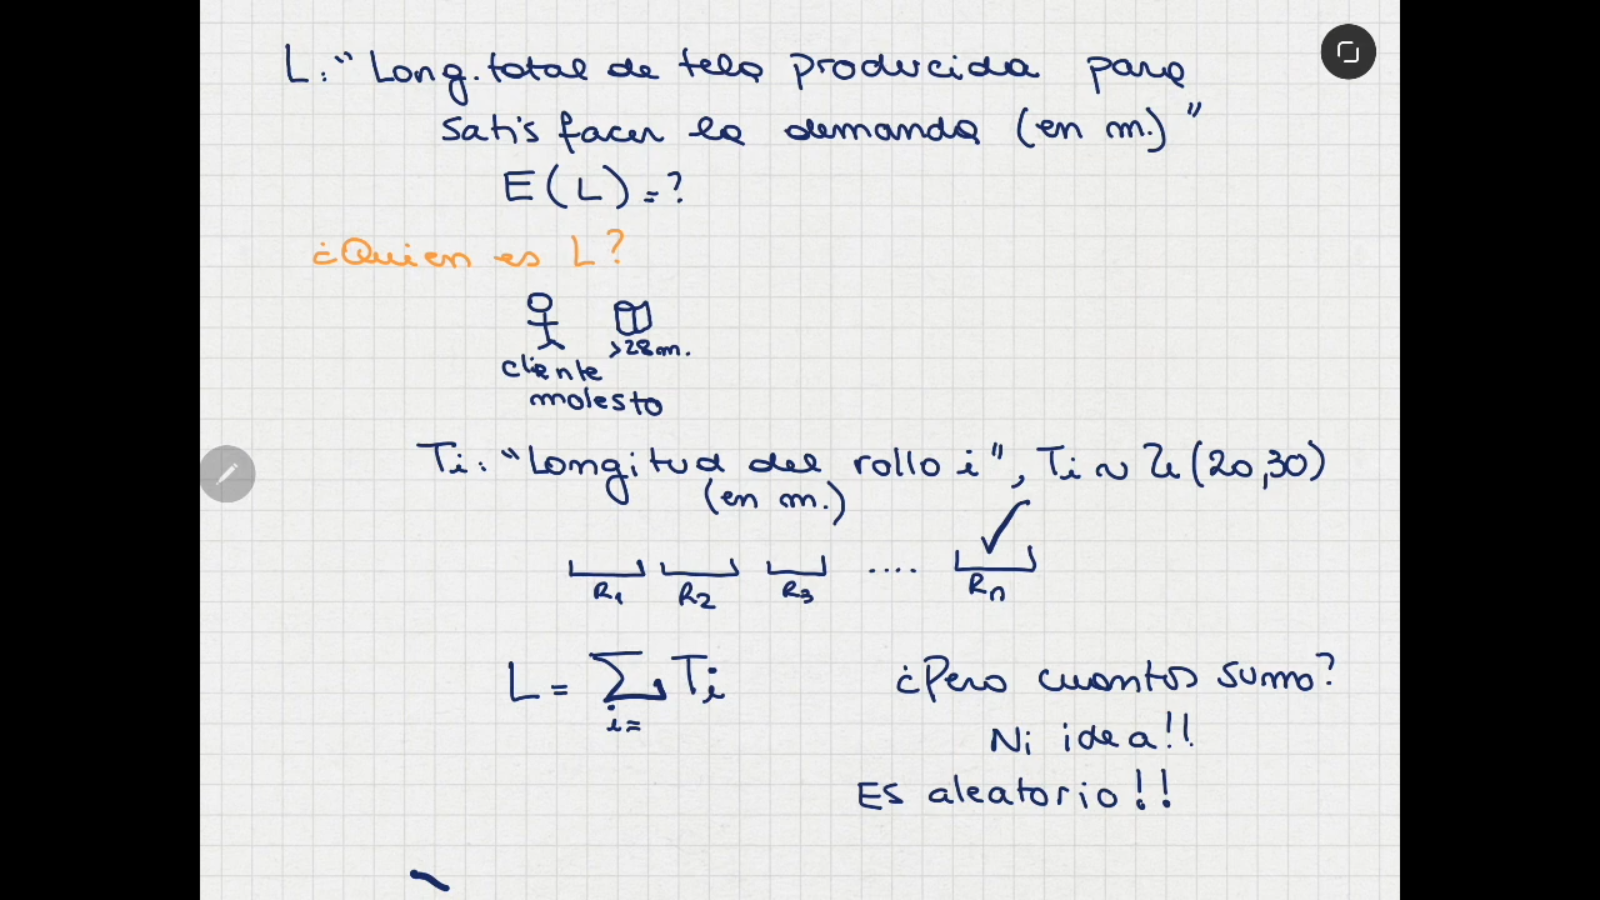 L: "Long. total de tela producida para
satisfacer la demanda (en m.)"
E(L)=?
¿Quien es L?
>28m.
cliente
molesto
Ti: "Longitud del rollo i", Ti ~ U(20,30)
(en m.)
R1 R2 R3 .... Rn
L = ∑ Ti ¿Pero cuantos sumo?
i=
Ni idea!!
Es aleatorio!!